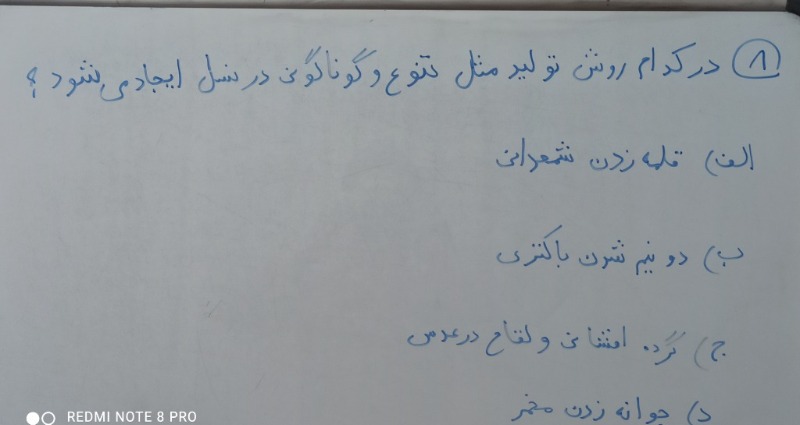 ۱ در کدام روش تولید مثل تنوع و گوناگونی در نسل ایجاد می شود ؟
الف) قلمه زدن شمعدانی
ب) دو نیم شدن باکتری
ج) گرده افشانی و لقاح در عدس
د) جوانه زدن مخمر
REDMI NOTE 8 PRO